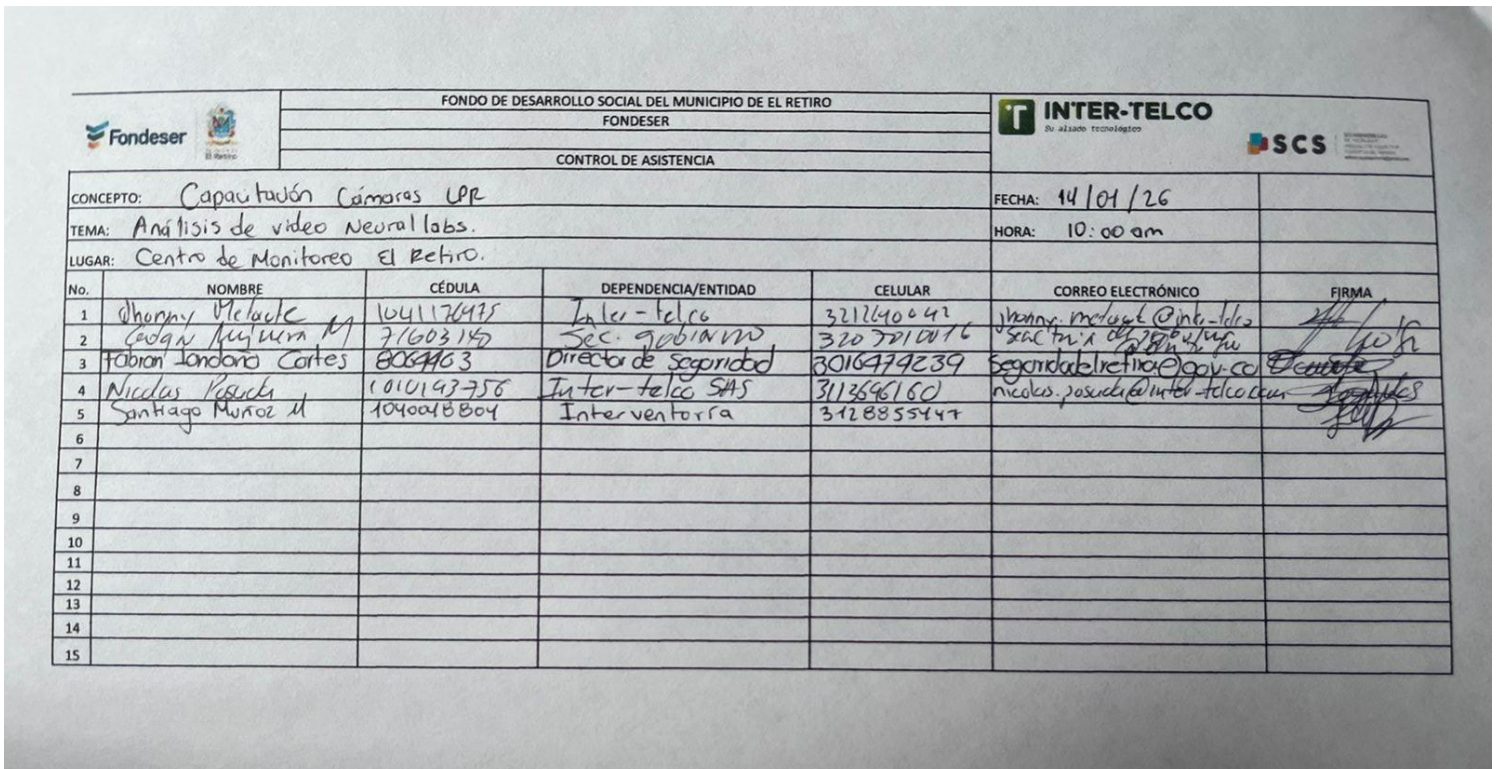 Fondeser
El Retiro
FONDO DE DESARROLLO SOCIAL DEL MUNICIPIO DE EL RETIRO
FONDESER
CONTROL DE ASISTENCIA
INTER-TELCO
Su aliado tecnológico
SCS
CONCEPTO: Capacitación Cámaras LPR
FECHA: 14/01/26
TEMA: Análisis de video Neural labs.
HORA: 10:00 am
LUGAR: Centro de Monitoreo El Retiro.
No. NOMBRE CÉDULA DEPENDENCIA/ENTIDAD CELULAR CORREO ELECTRÓNICO FIRMA
1 Jhonny 1041176475 Inter-telco 3212640042
2 71603140 Sec. gobierno 3207010016
3 Fabian Londoño Cortes 8064463 Director de Seguridad 3016479239
4 Nicolas Posada 1010193756 Inter-telco SAS 3113696160 nicolas.posada@inter-telco.com
5 Santiago Muñoz M 1040048804 Interventoría 3128855447
6
7
8
9
10
11
12
13
14
15